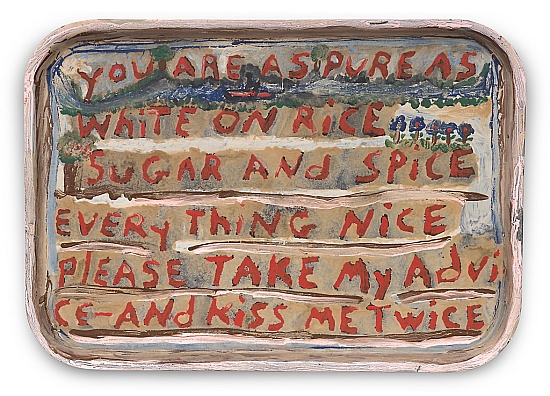 YOU ARE AS PURE AS
WHITE ON RiCE
SUGAR AND SPiCE
EVERy THiNG NiCE
PlEASE TAKE My AdVi
CE-ANd KiSS ME TWiCE